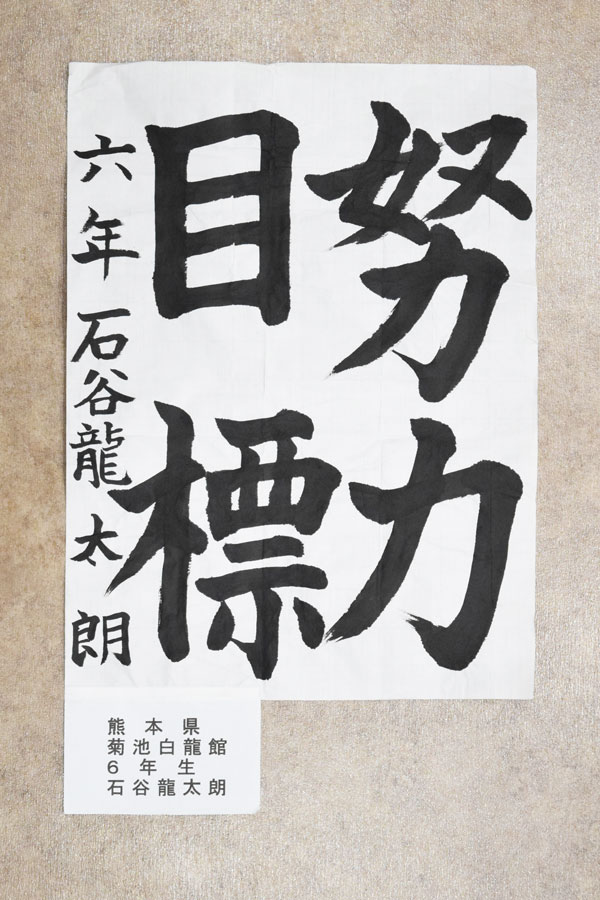 努力
目標
六年 石谷龍太朗
熊本県
菊池白龍館
6年生
石谷龍太朗